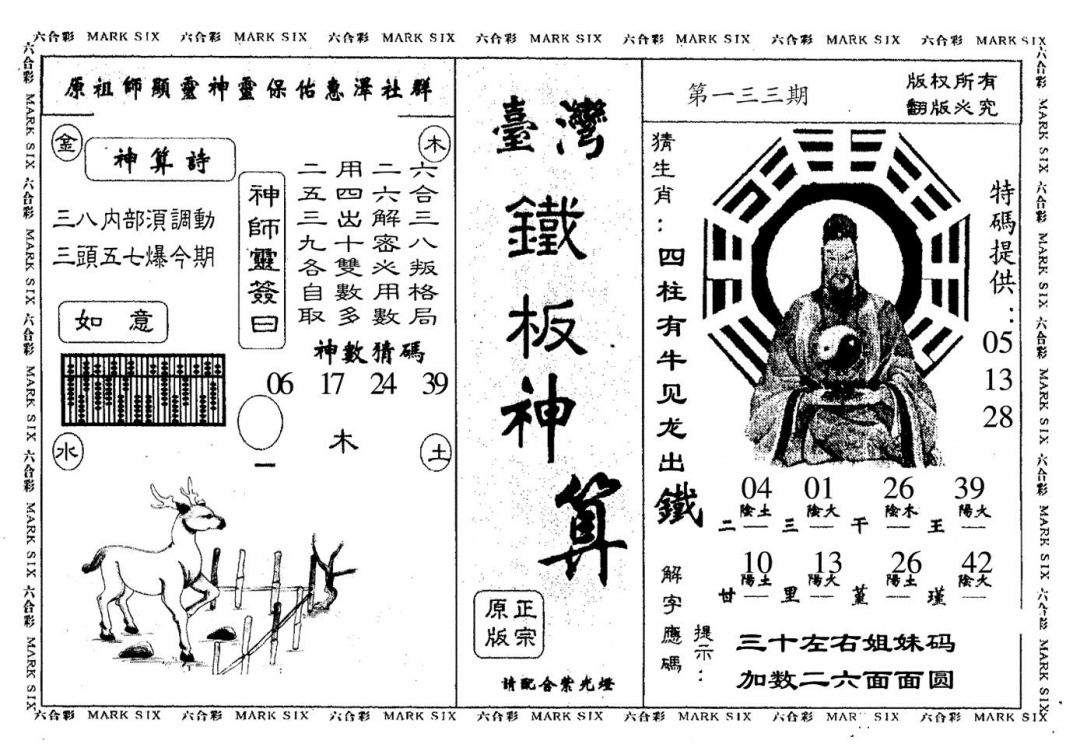 六合彩 MARK SIX 六合彩 MARK SIX 六合彩 MARK SIX 六合彩 MARK SIX 六合彩 MARK SIX 六合彩 MARK SIX 六合彩 MARK SIX
原祖師顯靈神靈保佑惠澤社群
金
神算詩
木
三八内部須調動
三頭五七爆今期
神師靈簽曰
六合三八叛格局
二六解密必用數
用四出十雙數多
二五三九各自取
如意
神數猜碼
06 17 24 39
木
一
水
土
臺灣
鐵板神算
正宗
原版
請配合紫光燈
第一三三期
版权所有
翻版必究
猜生肖：四柱有牛见龙出鐵
特碼提供：
05
13
28
04 01 26 39
陰土 陰火 陰木 陽火
二 三 干 王
10 13 26 42
陽土 陽火 陽土 陰火
甘 里 堇 瑾
解字應碼
提示：
三十左右姐妹码
加数二六面面圆
六合彩 MARK SIX 六合彩 MARK SIX 六合彩 MARK SIX 六合彩 MARK SIX 六合彩 MARK SIX 六合彩 MARK SIX 六合彩 MARK SIX
六合彩 MARK SIX 六合彩 MARK SIX 六合彩 MARK SIX 六合彩 MARK SIX 六合彩 MARK SIX
六合彩 MARK SIX 六合彩 MARK SIX 六合彩 MARK SIX 六合彩 MARK SIX MARK SIX